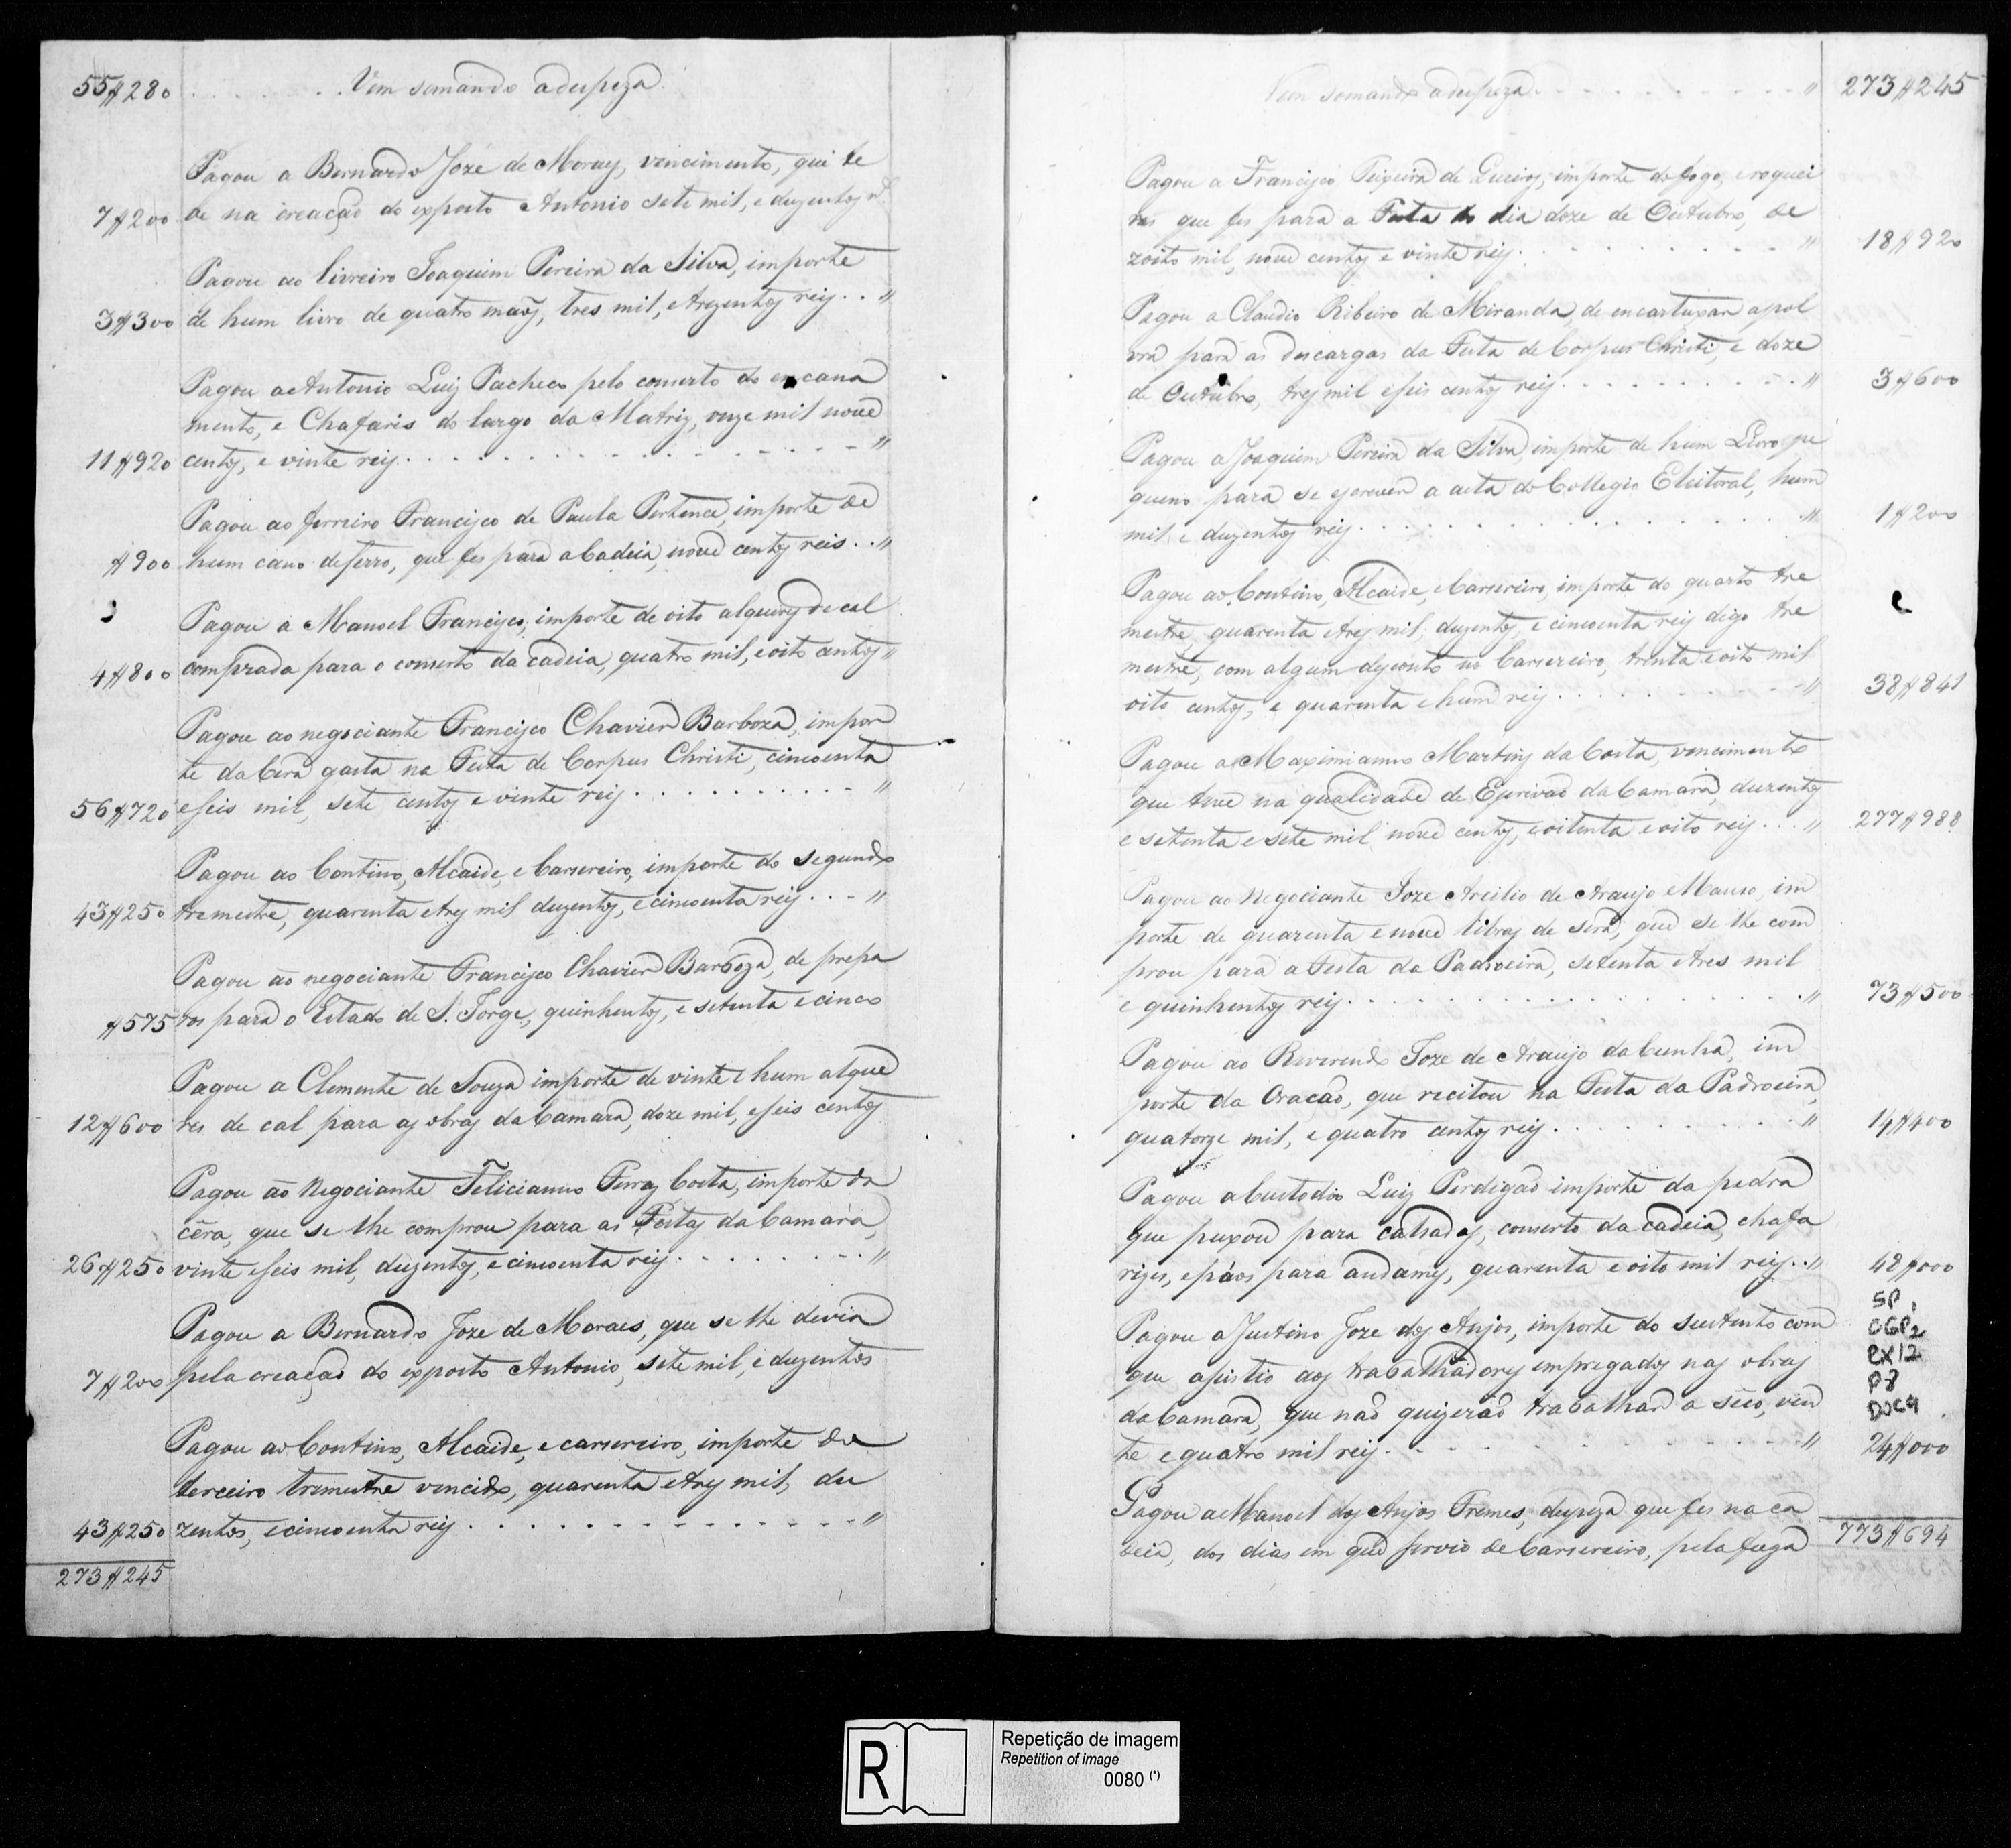 55$280 . . . . . . . . Vem somando a despeza
Pagou a Bernardo Joze de Moraes, vencimento, que te
7$200 ve na creação do exposto Antonio sete mil, e duzentos rs
Pagou ao livreiro Joaquim Pereira da Silva, importe
3$300 de hum livro de quatro mãos, tres mil, e trezentos reis . . "
Pagou a Antonio Luiz Pacheco pelo conserto do encana
mento, e Chafaris do largo da Matriz, onze mil nove
11$920 centos, e vinte reis . . . . . . . . . . . . . "
Pagou ao ferreiro Francisco de Paula Pertence, importe de
$900 hum cano de ferro, que fes para a Cadeia, nove centos reis . . "
Pagou a Manoel Francisco, importe de oito alqueires de cal
4$800 comprada para o conserto da cadeia, quatro mil, e oito centos "
Pagou ao negociante Francisco Chavier Barboza, impor
te da Cera gasta na Festa de Corpus Christi, cincoenta
56$720 e seis mil, sete centos e vinte reis . . . . . . . . . . "
Pagou ao Contino, Alcaide, e Carsereiro, importe do segundo
43$250 tremestre, quarenta e tres mil duzentos, e cincoenta reis . . . "
Pagou ao negociante Francisco Chavier Barboza, de prepa
$575 ros para o Estado de S. Jorge, quinhentos, e setenta e cinco
Pagou a Clemente de Souza importe de vinte e hum alquei
12$600 res de cal para as obras da Camara, doze mil, e seis centos
Pagou ao Negociante Felicianno Ferraz Costa, importe da
cêra, que se lhe comprou para as Festas da Camara,
26$250 vinte e seis mil, duzentos, e cincoenta reis . . . . . . . . "
Pagou a Bernardo Joze de Moraes, que se lhe devia
7$200 pela creação do exposto Antonio, sete mil, e duzentos
Pagou ao Contino, Alcaide, e carsereiro, importe do
terceiro trimestre vencido, quarenta e tres mil, du
43$250 zentos, e cincoenta reis . . . . . . . . . . . . . . "
273$245
Vem somando a despeza . . . . . . . . . . " 273$245
Pagou a Francisco Teixeira de Queiros, importe do fogo, e roquei
ras que fes para a Festa do dia doze de Outubro, de
zoito mil, nove centos e vinte reis . . . . . . . . . " 18$920
Pagou a Claudio Ribeiro de Miranda, de encartuxar a pol
vra para as descargas da Festa de Corpus Christi, e doze
de Outubro, tres mil e seis centos reis . . . . . . . . . . " 3$600
Pagou a Joaquim Pereira da Silva, importe de hum Livro pe
queno para se escrever a acta do Collegio Eleitoral, hum
mil e duzentos reis . . . . . . . . . . . . . . . . " 1$200
Pagou ao Contino, Alcaide, e Carsereiro, importe do quarto tre
mestre quarenta e tres mil, duzentos, e cincoenta reis digo tre
mestre, com algum desconto no Carsereiro, trinta e oito mil
oito centos, e quarenta e hum reis . . . . . . . . . . " 38$841
Pagou a Maximianno Martins da Costa, vencimento
que teve na qualidade de Escrivão da Camara, duzentos
e setenta e sete mil nove centos, e oitenta e oito reis . . . " 277$988
Pagou ao Negociante Joze Arcilio de Araujo Mauso, im
porte de quarenta e nove libras de sera, que se lhe com
prou para a Festa da Padroeira, setenta e tres mil
e quinhentos reis . . . . . . . . . . . . . . . . . " 73$500
Pagou ao Reverendo Joze de Araujo da Cunha, im
porte da Oração, que recitou na Festa da Padroeira,
quatorze mil, e quatro centos reis . . . . . . . . . . " 14$400
Pagou a Custodio Luiz Perdigão importe da pedra
que puxou para calsadas, conserto da cadeia, chafa
rizes, e páos para andames, quarenta e oito mil reis . . " 48$000
SP.
CGP2
CX12
P8
DOC4
Pagou a Justino Joze dos Anjos, importe do sustento com
que asistio aos trabalhadores empregados nas obras
da Camara, que não quizerão trabalhar a sêco, vin
te e quatro mil reis . . . . . . . . . . . . . . . . " 24$000
Pagou a Manoel dos Anjos Fremes, despeza que fes na ca
deia, dos dias em que servio de Carsereiro, pela fuga 773$694
R
Repetição de imagem
Repetition of image
0080 (*)